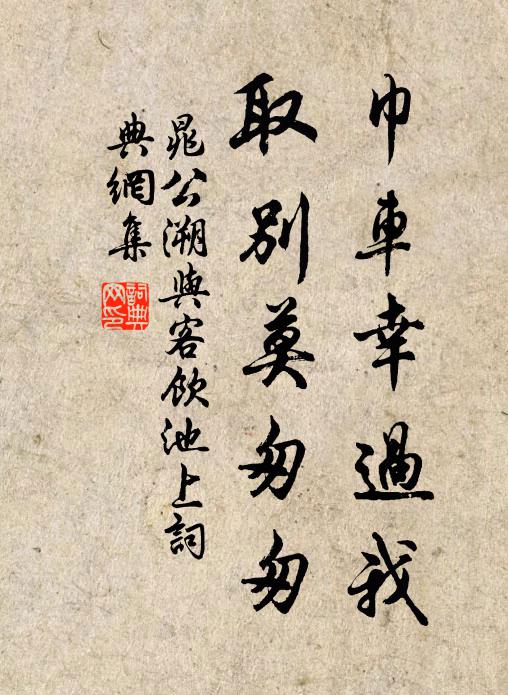 巾車幸過我
取別莫匆匆
晁公溯與客飲池上詞
典網集
詞典網印